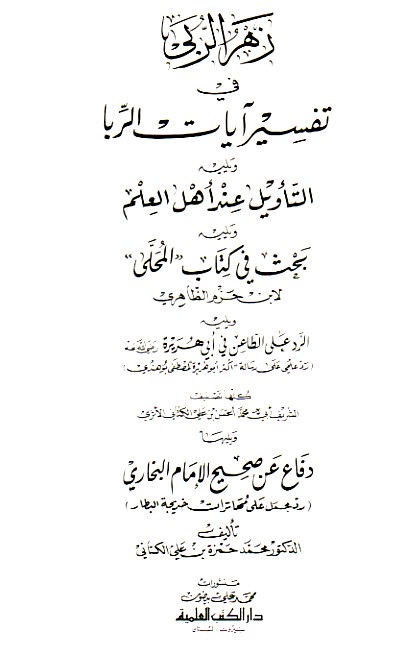 زهر الربى
في
تفسير آيات الربا
ويليه
التأويل عند أهل العلم
ويليه
بحث في كتاب "المحلى"
لابن حزم الظاهري
ويليه
الرد على الطاعن في أبي هريرة رضي الله عنه
(رد علمي على رسالة "أكثر أبو هريرة" لمصطفى بوهندي)
كلها تصنيف
الشريف محمد بن علي الكتاني الأثري
ويليها
دفاع عن صحيح الإمام البخاري
(رد مجمل على مهاترات خديجة البطار)
تأليف
الدكتور محمد حمزة بن علي الكتاني
منشورات
محمد علي بيضون
دار الكتب العلمية
بيروت - لبنان